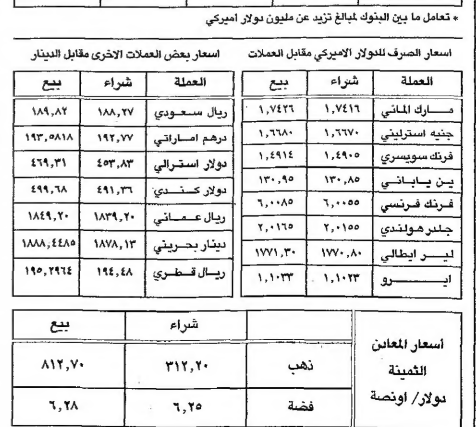 * تعامل ما بين البنوك لمبالغ تزيد عن مليون دولار أميركي
اسعار الصرف للدولار الاميركي مقابل العملات
العملة شراء بيع
مارك الماني ١,٧٤١٦ ١,٧٤٢٦
جنيه استرليني ١,٦٦٧٠ ١,٦٦٨٠
فرنك سويسري ١,٤٩٠٥ ١,٤٩١٤
ين ياباني ١٣٠,٨٥ ١٣٠,٩٥
فرنك فرنسي ٦,٠٠٥٥ ٦,٠٠٨٥
جلدر هولندي ٢,٠١٥٥ ٢,٠١٦٥
ليـر ايطالي ١٧٧٠,٨٠ ١٧٧١,٣٠
ايـــرو ١,١٠٢٣ ١,١٠٣٣
اسعار بعض العملات الاخرى مقابل الدينار
العملة شراء بيع
ريال سعودي ١٨٨,٢٧ ١٨٩,٨٢
درهم اماراتي ١٩٢,٧٧ ١٩٣,٥٨١٨
دولار استرالي ٤٥٣,٨٣ ٤٦٩,٣١
دولار كندي ٤٩١,٣٦ ٤٩٩,٦٨
ريال عماني ١٨٣٩,٢٠ ١٨٤٩,٢٠
دينار بحريني ١٨٧٨,١٣ ١٨٨٨,٤٤٨٥
ريال قطري ١٩٤,٤٨ ١٩٥,٢٩٦٤
أسعار المعادن
الثمينة
دولار/ اونصة
شراء بيع
ذهب ٣١٢,٢٠ ٨١٢,٧٠
فضة ٦,٢٥ ٦,٢٨